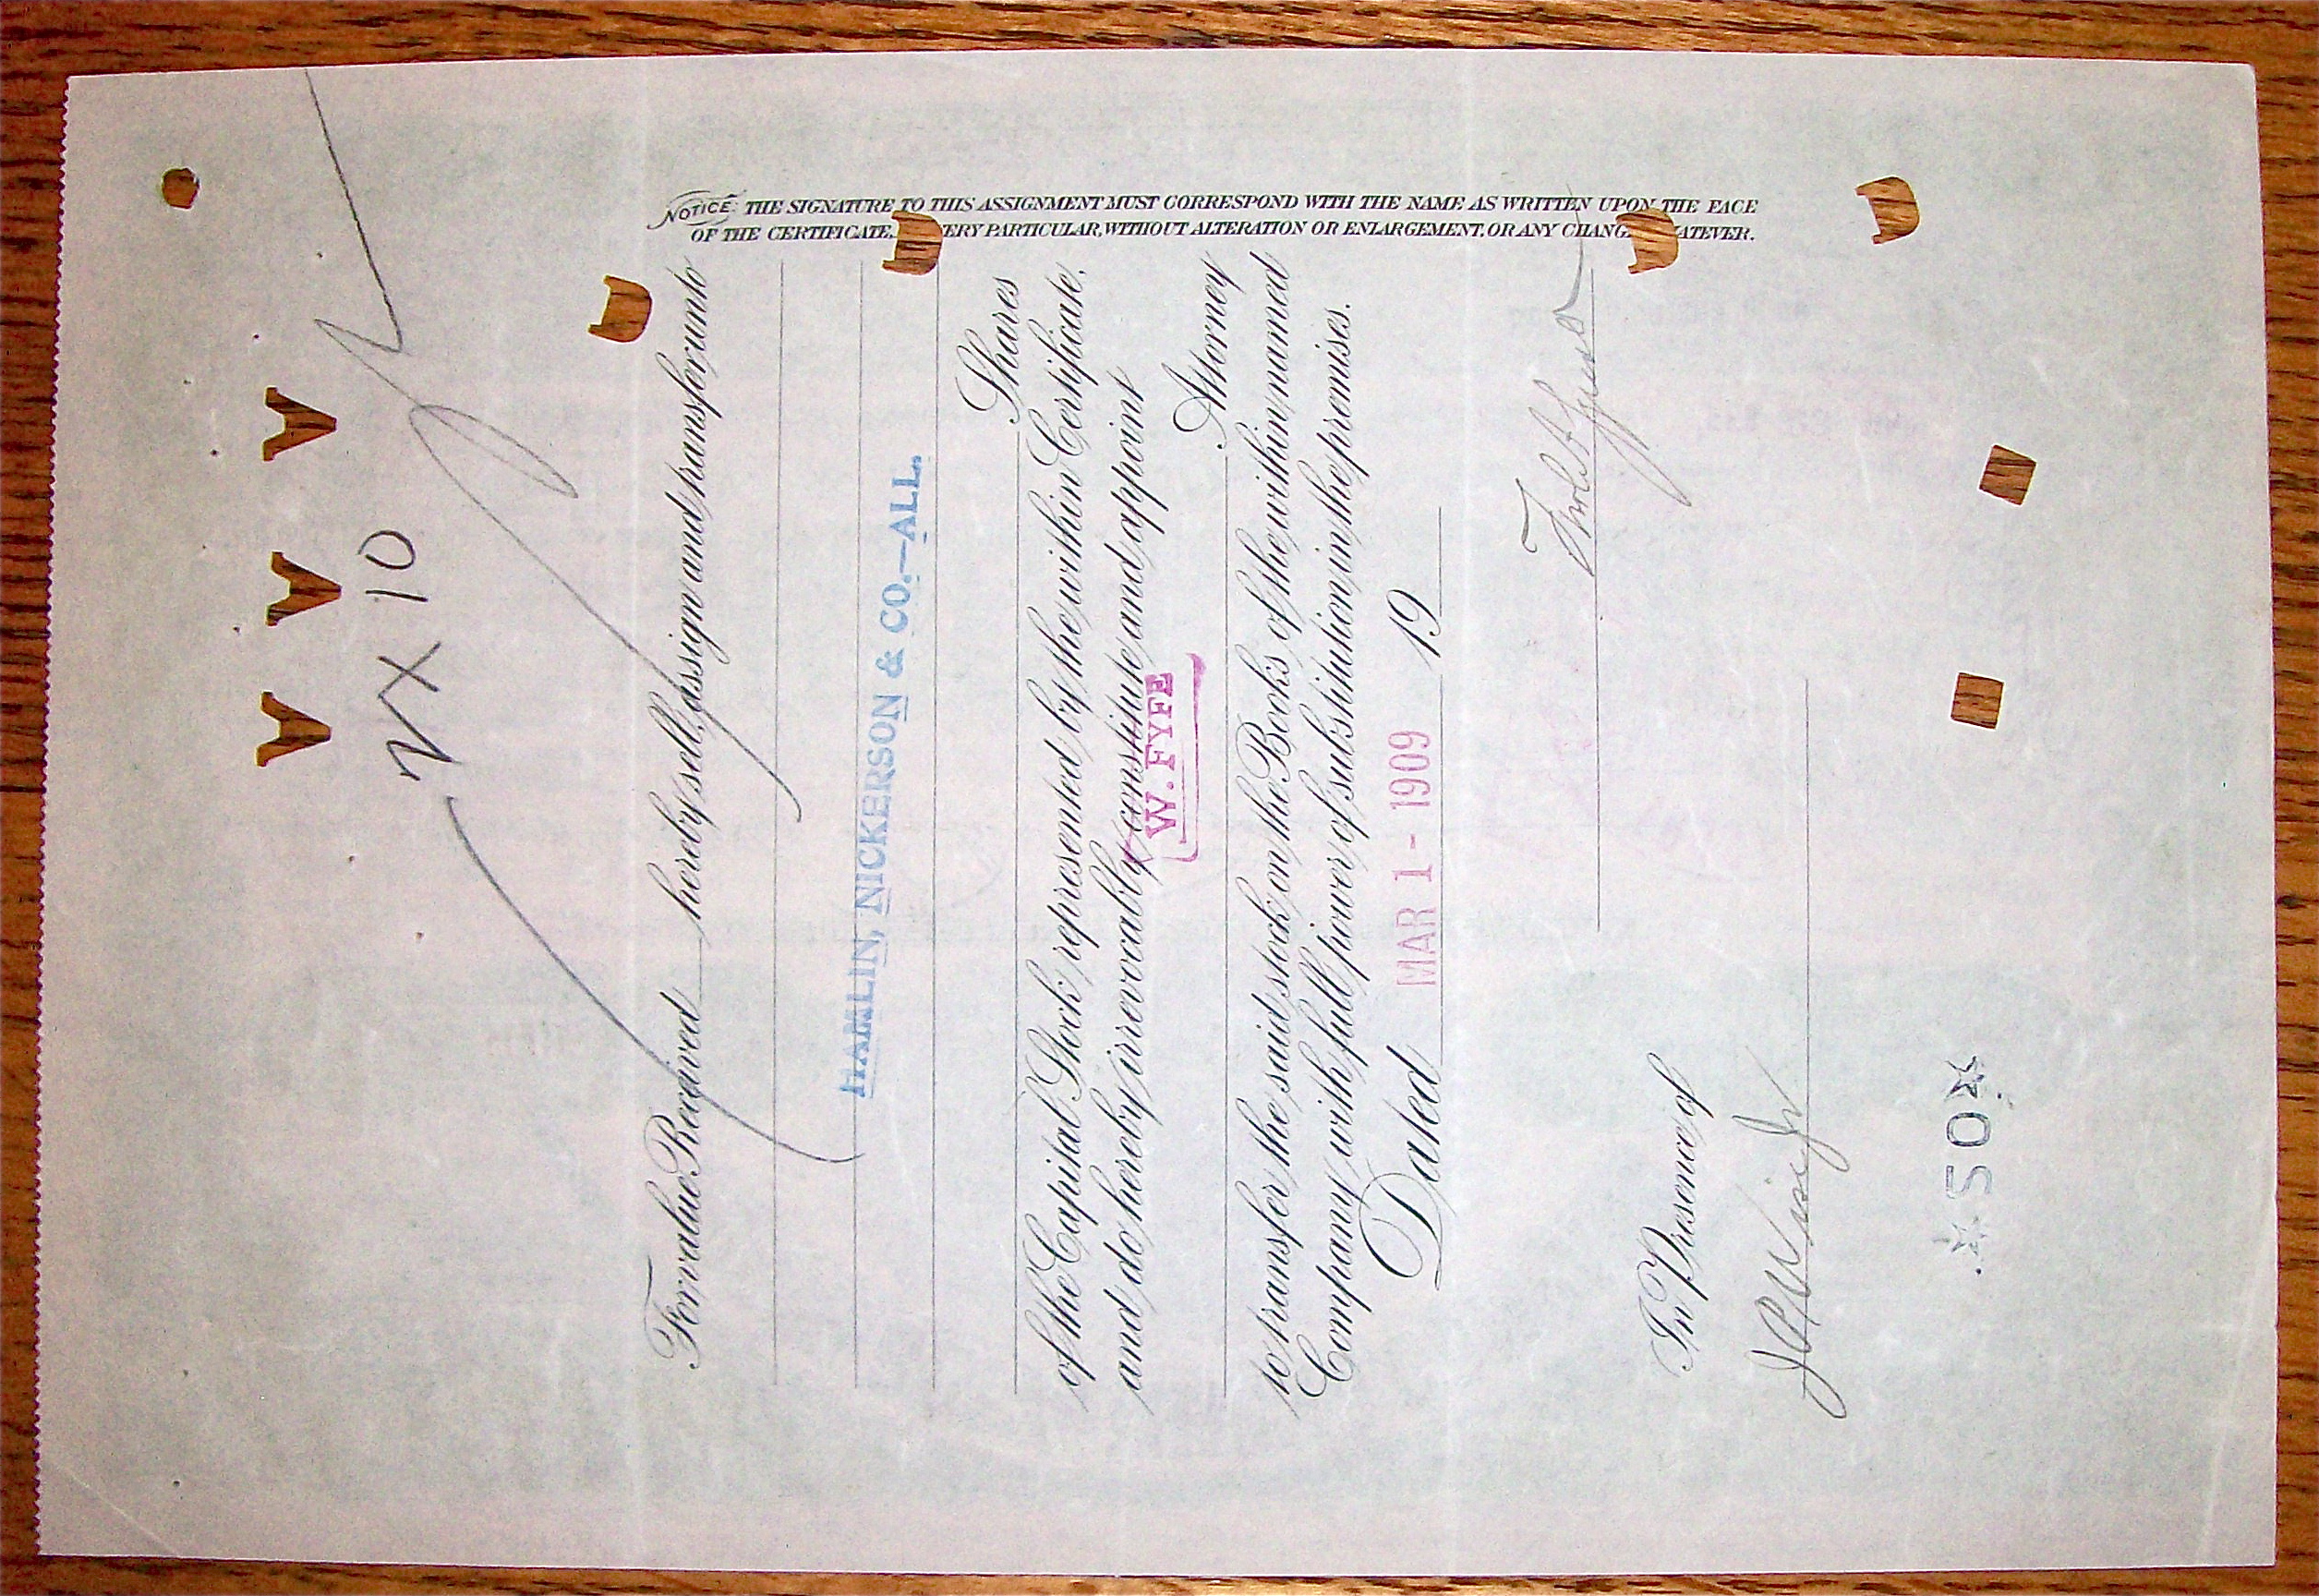 VX 10
For value Received hereby sell, assign and transfer unto
HAMLIN, NICKERSON & CO.—ALL.
Shares
of the Capital Stock represented by the within Certificate,
and do hereby irrevocably constitute and appoint
W. FYFE
Attorney
to transfer the said stock on the Books of the within named
Company with full power of substitution in the premises.
Dated MAR 1 - 1909 19
In Presence of
*50*
NOTICE: THE SIGNATURE TO THIS ASSIGNMENT MUST CORRESPOND WITH THE NAME AS WRITTEN UPON THE FACE
OF THE CERTIFICATE, ERY PARTICULAR, WITHOUT ALTERATION OR ENLARGEMENT, OR ANY CHANG ATEVER.